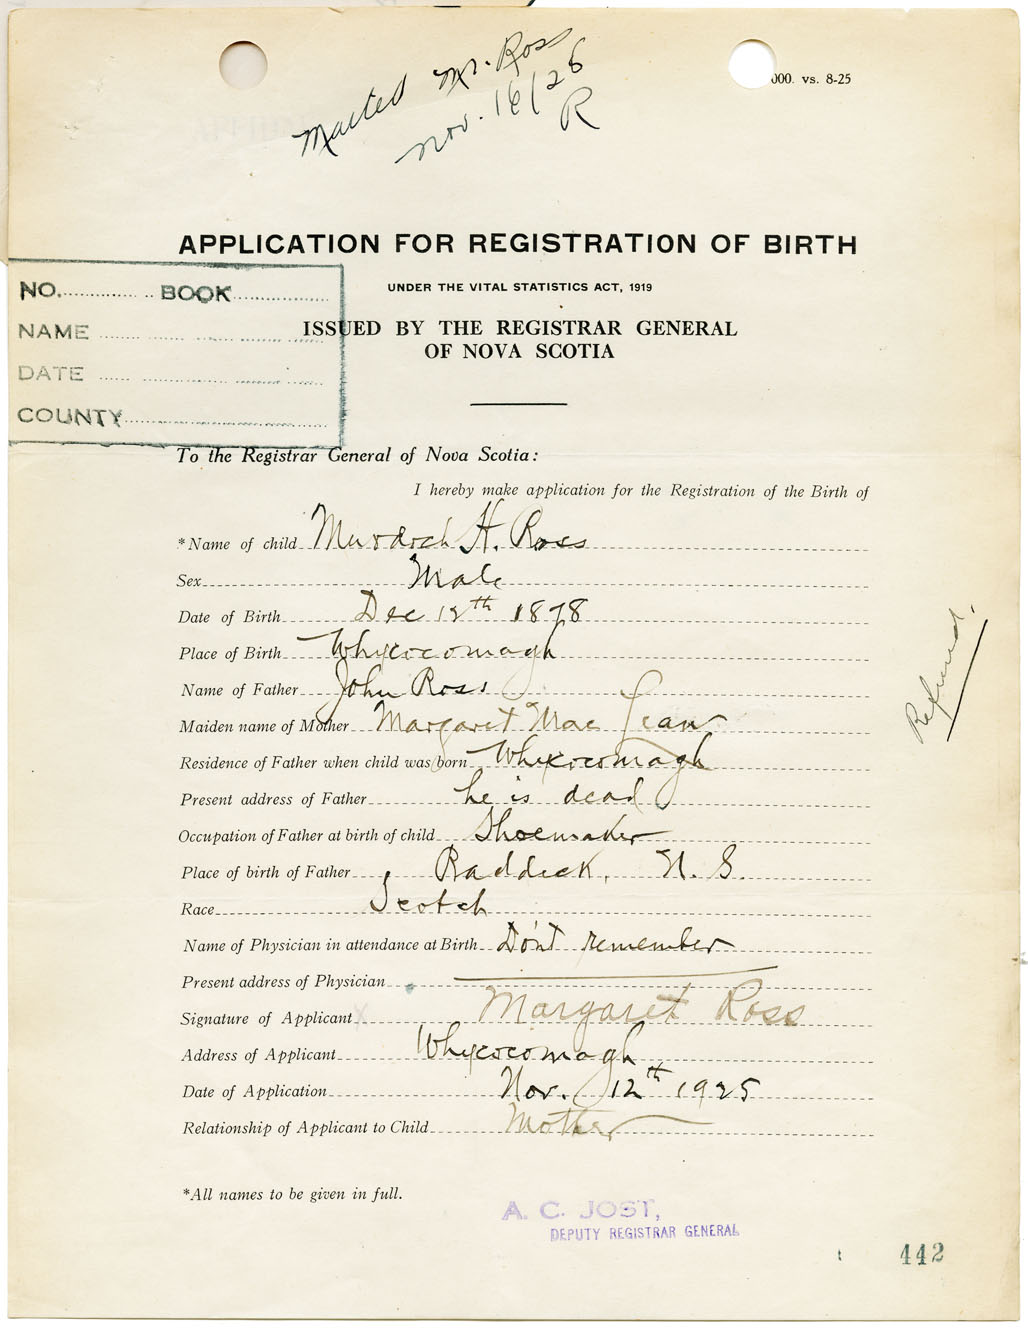 Mailed Mr. Ross
Nov. 16/26
R
000. vs. 8-25
APPLICATION FOR REGISTRATION OF BIRTH
UNDER THE VITAL STATISTICS ACT, 1919
ISSUED BY THE REGISTRAR GENERAL
OF NOVA SCOTIA
NO. BOOK
NAME
DATE
COUNTY
To the Registrar General of Nova Scotia:
I hereby make application for the Registration of the Birth of
*Name of child Murdoch H. Ross
Sex Male
Date of Birth Dec 12th 1878
Place of Birth Whycocomagh
Name of Father John Ross
Maiden name of Mother Margaret MacLean
Residence of Father when child was born Whycocomagh
Present address of Father he is dead
Occupation of Father at birth of child Shoemaker
Place of birth of Father Baddeck, N. S.
Race Scotch
Name of Physician in attendance at Birth Don't remember
Present address of Physician
Signature of Applicant X Margaret Ross
Address of Applicant Whycocomagh
Date of Application Nov. 12th 1925
Relationship of Applicant to Child Mother
Refund.
*All names to be given in full.
A. C. JOST,
DEPUTY REGISTRAR GENERAL
442